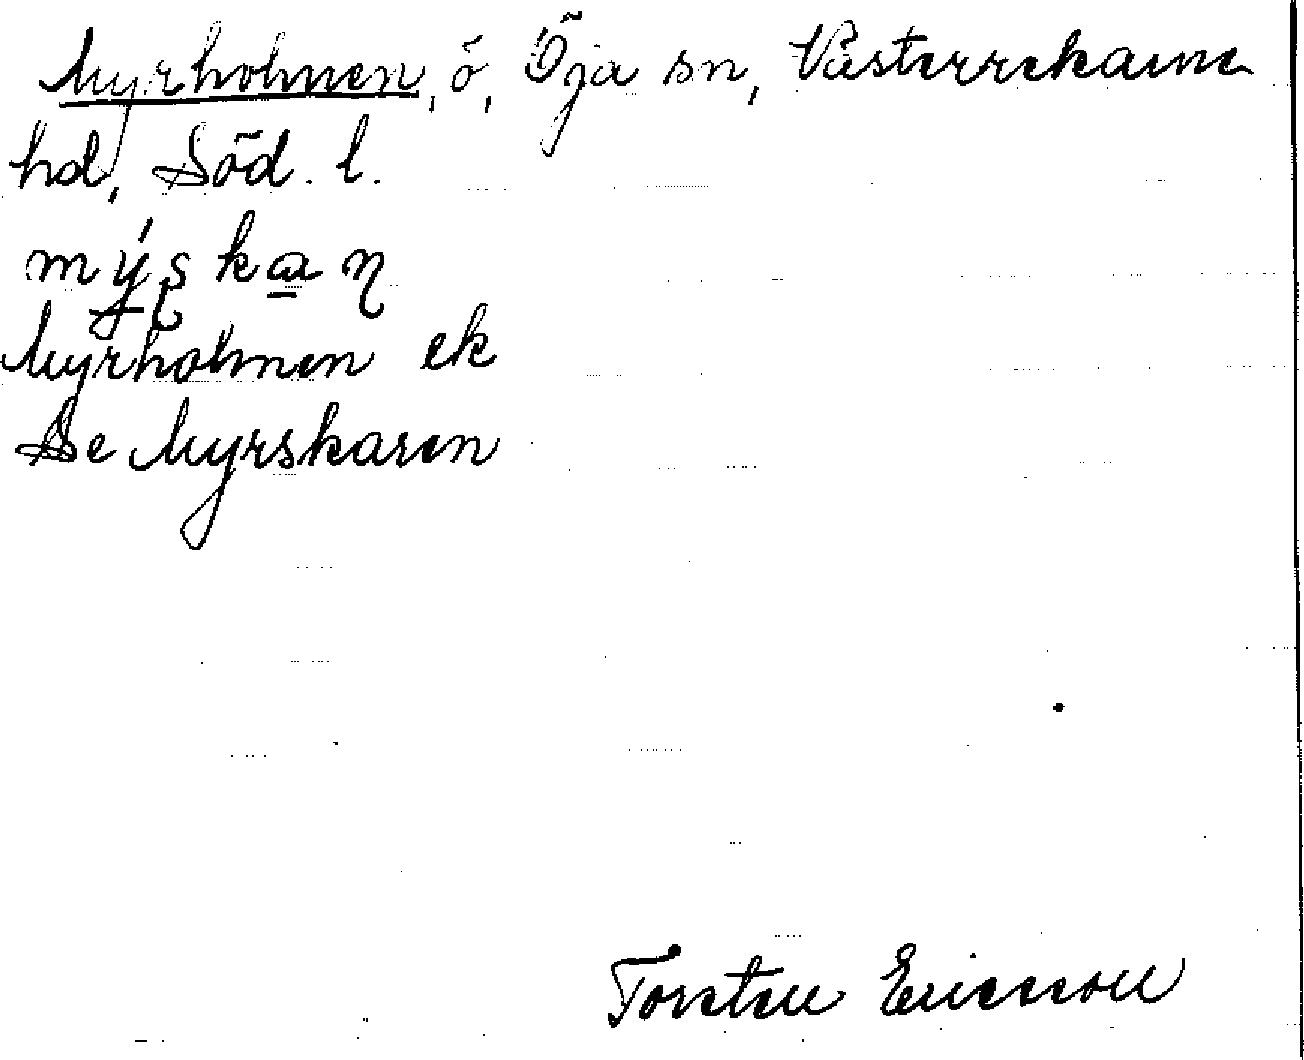 Myrholmen, ö, Ösja sn, Västerrekarne
hd, Söd. l.
mýʂkaɳ
Myrholmen ek
Se Myrskaren
Torsten Ericsson